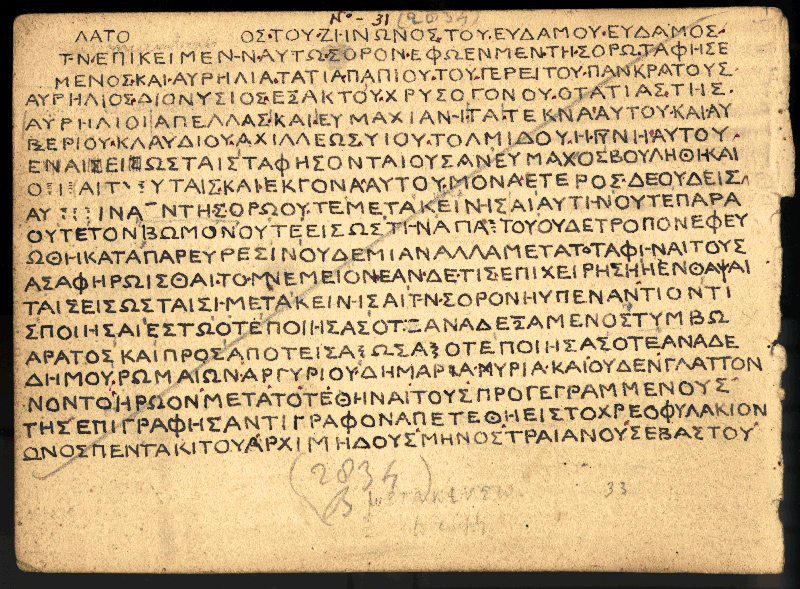 No - 31 (2834)
ΛΑΤΟ ΟΣ·ΤΟΥ·ΖΗΝΩΝΟΣ·ΤΟΥ·ΕΥΔΑΜΟΥ·ΕΥΔΑΜΟΣ·
Τ·Ν·ΕΠΙΚΕΙΜΕΝ·Ν·ΑΥΤΩ·ΣΟΡΟΝ·ΕΦΩΕΝΜΕΝ·ΤΗ·ΣΟΡΩ·ΤΑΦΗΣΕ
ΜΕΝΟΣ·ΚΑΙ·ΑΥΡΗΛΙΑ·ΤΑΤΙΑ·ΠΑΠΙΟΥ·ΤΟΥ·ΓΕΡΕΙΤΟΥ·ΠΑΝΚΡΑΤΟΥΣ·
ΑΥΡΗΛΙΟΣ·ΔΙΟΝΥΣΙΟΣ·ΕΞΑΚΤΟΥ·ΧΡΥΣΟΓΟΝΟΥ·ΟΤΑΤΙΑΣ·ΤΗΣ·
ΑΥΡΗΛΙΟΙ ΑΠΕΛΛΑΣ·ΚΑΙ·ΕΥΜΑΧΙΑΝ·ΙΤΑ·ΤΕΚΝΑ·ΑΥΤΟΥ·ΚΑΙ·ΑΥ
ΒΕΡΙΟΥ·ΚΛΑΥΔΙΟΥ·ΑΧΙΛΛΕΩΣ·ΥΙΟΥ·ΤΟΛΜΙΔΟΥ·Η·ΓΥΝΗ·ΑΥΤΟΥ·
ΕΝΑΙΣ·ΕΙΣΩΣΤΑΙΣ·ΤΑΦΗΣΟΝΤΑΙ·ΟΥΣ·ΑΝ·ΕΥΜΑΧΟΣ·ΒΟΥΛΗΘΗ·ΚΑΙ
ΤΑΙΣ·ΚΑΙ·ΕΚΓΟΝΑ·ΑΥΤΟΥ·ΜΟΝΑ·ΕΤΕΡΟΣ·ΔΕ·ΟΥΔΕΙΣ
ΝΤΗ·ΣΟΡΩ·ΟΥΤΕ·ΜΕΤΑΚΕΙΝΗΣΑΙ·ΑΥΤΙΝ·ΟΥΤΕ·ΠΑΡΑ
ΟΥΤΕ·ΤΟΝ·ΒΩΜΟΝ·ΟΥΤΕ·ΕΙΣΩΣΤΙΝ·ΑΠ ΤΟΥ·ΟΥΔΕ·ΤΡΟΠΟΝ·ΕΦΕΥ
ΩΘΗ·ΚΑΤΑ·ΠΑΡΕΥΡΕΣΙΝ·ΟΥΔΕΜΙΑΝ·ΑΛΛΑ·ΜΕΤΑ·ΤΟ·ΤΑΦΙΝΑΙ·ΤΟΥΣ
ΑΣ·ΑΦΗΡΩΙΣΘΑΙ·ΤΟ·ΜΝΕΜΕΙΟΝ·ΕΑΝ·ΔΕ·ΤΙΣ·ΕΠΙΧΕΙΡΗΣΗ·Η·ΕΝΘΑΨΑΙ
ΤΑΙΣ·ΕΙΣΩΣΤΑΙΣ·Ι·ΜΕΤΑΚΕΙΝ·ΙΣΑΙ·Τ·Ν·ΣΟΡΟΝ·Η·ΥΠΕΝΑΝΤΙΟΝ·ΤΙ
ΣΠΟΙΗΣΑΙ·ΕΣΤΩ·Ο·ΤΕ·ΠΟΙΗΣΑΣ·Ο·ΤΕ·ΑΝΑΔΕΞΑΜΕΝΟΣ·ΤΥΜΒΩ
ΑΡΑΤΟΣ·ΚΑΙ·ΠΡΟΣΑΠΟΤΕΙΣΑ·ΩΣΑ·Ο·ΤΕ·ΠΟΙΗΣΑΣ·Ο·ΤΕ·ΑΝΑΔΕ
ΔΗΜΟΥ·ΡΩΜΑΙΩΝ·ΑΡΓΥΡΙΟΥ·ΔΗΜΑΡΙΑ·ΜΥΡΙΑ·ΚΑΙ·ΟΥΔΕΝ·ΓΛΑΤΤΟΝ
ΝΟΝ·ΤΟ·ΗΡΩΟΝ·ΜΕΤΑ·ΤΟ·ΤΕΘΗΝΑΙ·ΤΟΥΣ·ΠΡΟΓΕΓΡΑΜΜΕΝΟΥΣ
ΤΗΣ·ΕΠΙΓΡΑΦΗΣ·ΑΝΤΙΓΡΑΦΟΝ·ΑΠΕΤΕΘΗ·ΕΙΣ·ΤΟ·ΧΡΕΟΦΥΛΑΚΙΟΝ
ΩΝΟΣ·ΠΕΝΤΑΚΙ·ΤΟΥ·ΑΡΧΙΜΗΔΟΥΣ·ΜΗΝΟΣ·ΤΡΑΙΑΝΟΥ·ΣΕΒΑΣΤΟΥ
(2834)
33